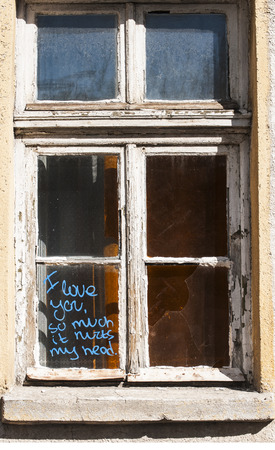 I love
you,
so much
it hurts
my head.